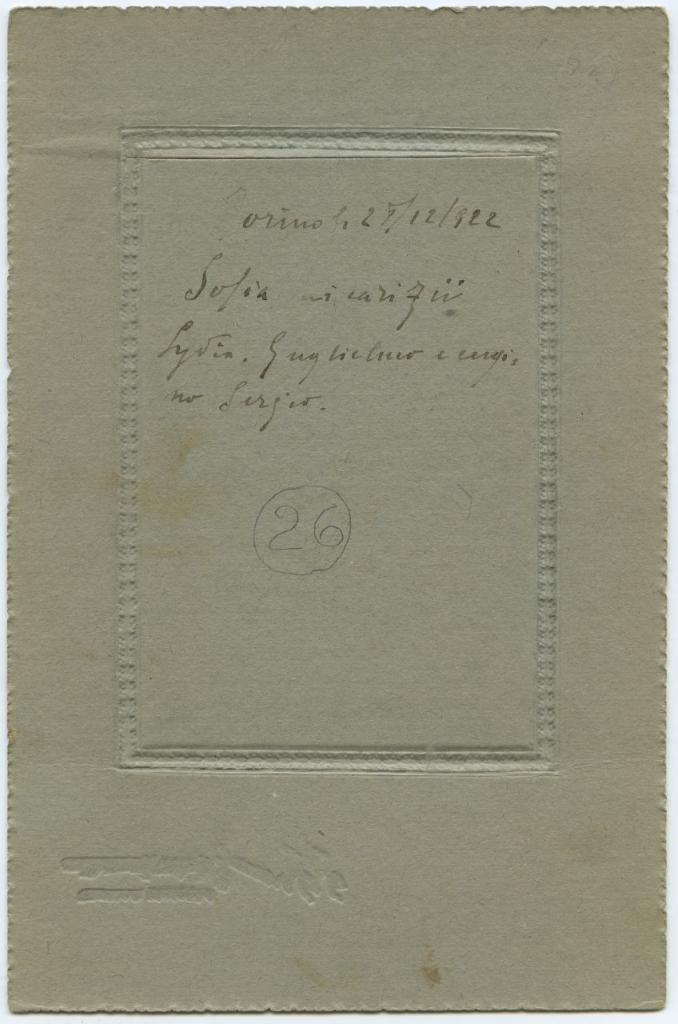 Torino li 27/12/922
Sofia ai cari Zii
Lydia, Guglielmo e cugi-
no Sergio.
26